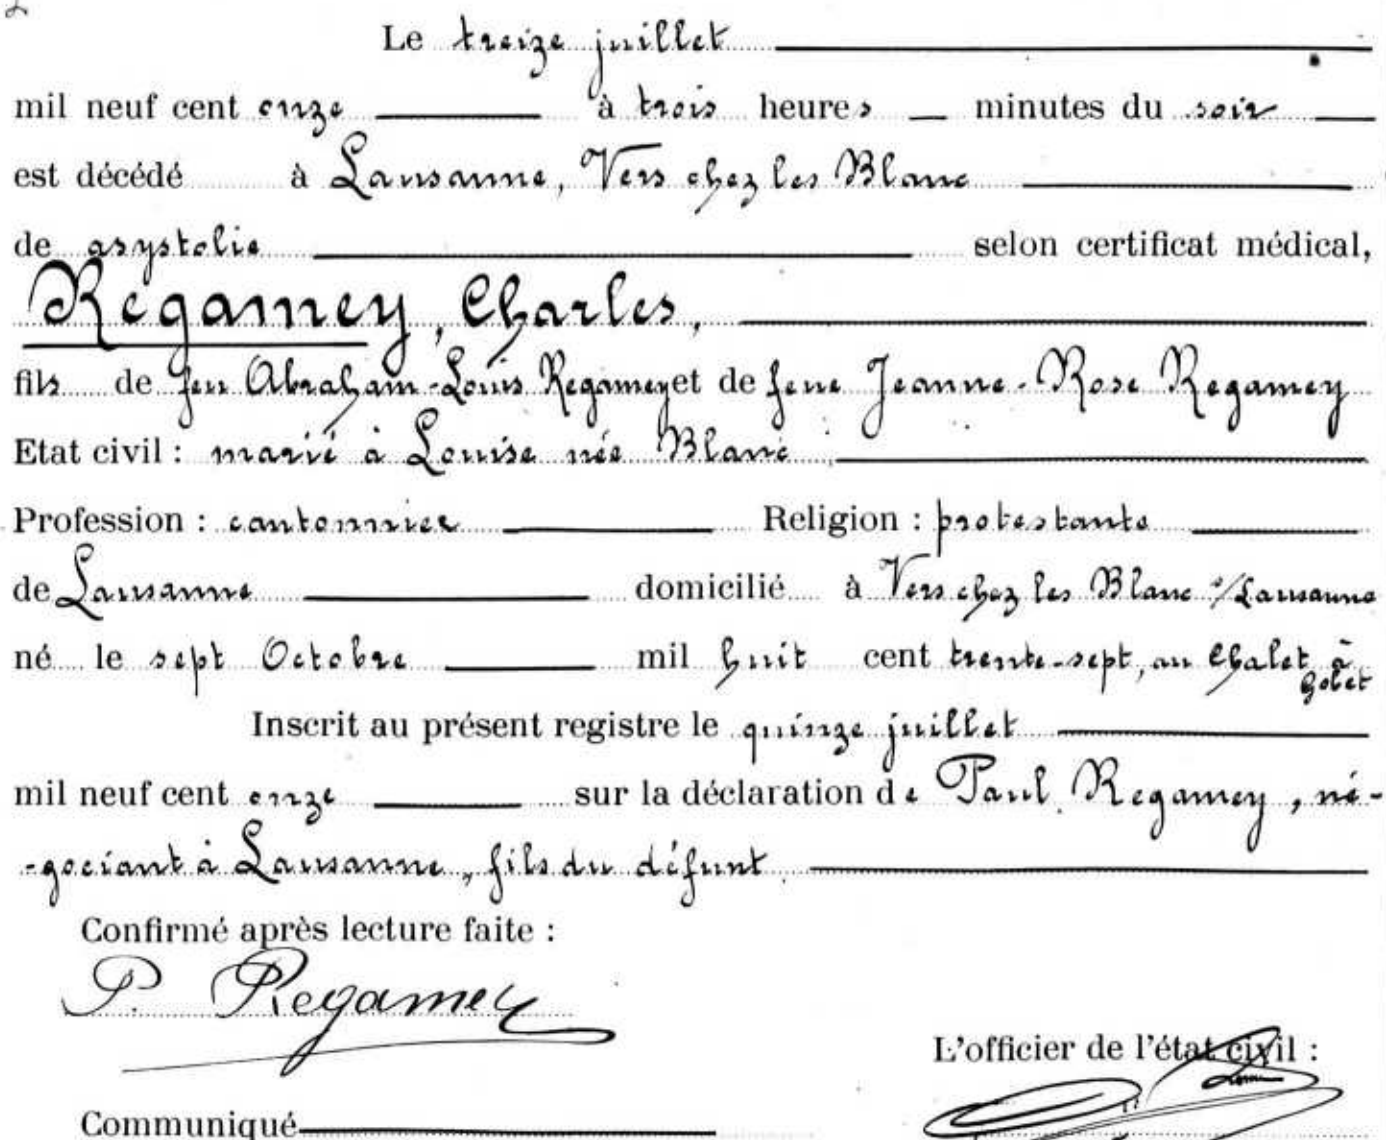 Le treize juillet
mil neuf cent onze à trois heures minutes du soir
est décédé à Lausanne, Vers chez les Blanc
de asystolie selon certificat médical,
Regamey, Charles,
fils de feu Abraham-Louis Regamey et de feue Jeanne-Rose Regamey
Etat civil : marié à Louise née Blanc
Profession : cantonnier Religion : protestante
de Lausanne domicilié à Vers chez les Blanc s/Lausanne
né le sept Octobre mil huit cent trente-sept, au Chalet à
Gobet
Inscrit au présent registre le quinze juillet
mil neuf cent onze sur la déclaration de Paul Regamey, né-
-gociant à Lausanne, fils du défunt
Confirmé après lecture faite :
P. Regamey
L'officier de l'état civil :
Communiqué